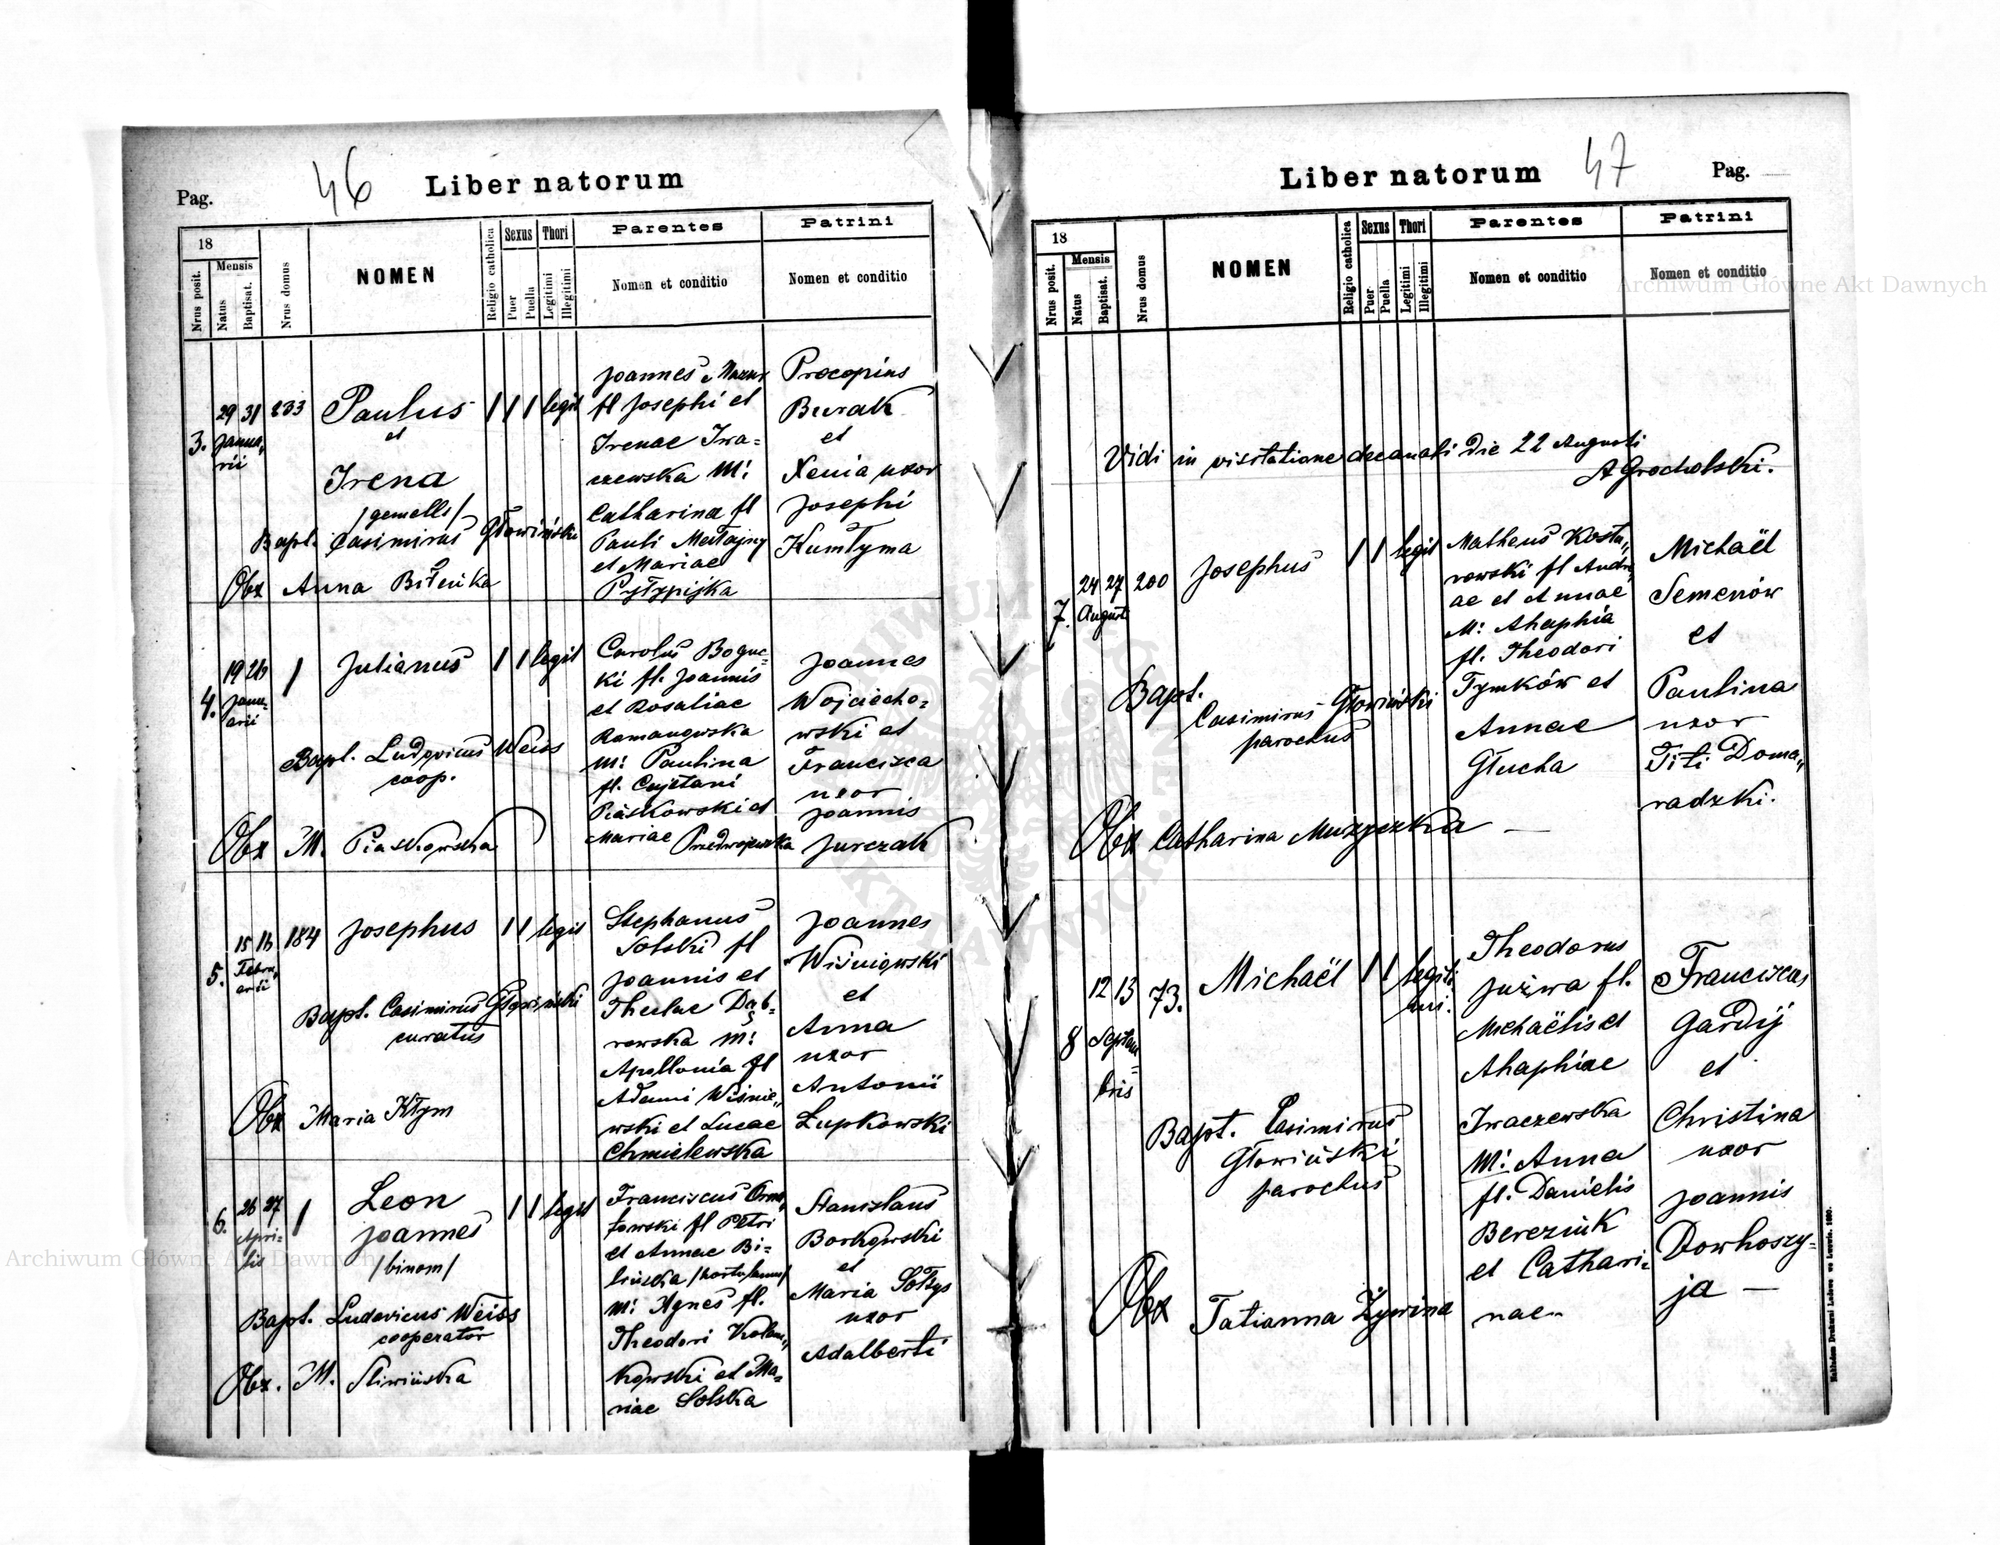 Pag.
46
Liber natorum
18
Nrus posit.
Mensis
Natus
Baptisat.
Nrus domus
NOMEN
Religio catholica
Sexus
Puer
Puella
Thori
Legitimi
Illegitimi
Parentes
Nomen et conditio
Patrini
Nomen et conditio
3.
29 31
Janua„
rii
233
Paulus
et
Irena
/gemelli/
legit
Bapt. Casimirus Głowiński
Obx Anna Bilenka
Joannes Mazur
fl Josephi et
Irenae Iwa=
czewska M:
Catharina fl
Pauli
et Mariae
Procopius
Burak
et
Xenia uxor
Josephi
Kumłyma
4.
19 26
Janu„
arii
1
Julianus
legit
Bapt. Ludovicus Weiss
coop.
Obx M. Piaskowska
Carolus Boguc=
ki fl. Joannis
et Rosaliae
Romanowska
M: Paulina
fl. Cajetani
Piaskowski et
Mariae
Joannes
Wojciecho=
wski et
Francisca
uxor
Joannis
Jurczak
5.
15 16
Febru„
arii
184
Josephus
legit
Bapt. Casimirus Głowiński
curatus
Obx Maria Kłym
Stephanus
Solski fl
Joannis et
Theclae Dąb-
rowska M:
Apollonia fl
Adami Wiśnie„
wski et Lucae
Chmielewska
Joannes
Wiśniewski
et
Anna
uxor
Antonii
Łupkowski
6.
26 27
Apri-
lis
1
Leon
Joannes
/binom/
legit
Bapt. Ludovicus Weiss
cooperator
Obx. M. Sliwińska
Franciscus
fl Petri
et Annae Bi=
lińska /hortulanus/
M: Agnes fl.
Theodori
kowski et Ma-
riae Solska
Stanislaus
Borkowski
et
Maria Sołtys
uxor
Adalberti
Liber natorum
47
Pag.
18
Nrus posit.
Mensis
Natus
Baptisat.
Nrus domus
NOMEN
Religio catholica
Sexus
Puer
Puella
Thori
Legitimi
Illegitimi
Parentes
Nomen et conditio
Patrini
Nomen et conditio
Vidi in visitatione decanali die 22 Augusti
A Grocholski.
7.
24 27
Augusti
200
Josephus
legit
Bapt.
Casimirus Głowiński
parochus
Obx Catharina Muzyczka —
Matheus Kostu„
rowski fl Andre„
ae et Annae
M: Ahaphia
fl. Theodori
Tymków et
Annae
Głucha
Michaël
Semenów
et
Paulina
uxor
Titi Doma„
radzki.
8
12 13
Septem=
bris
73.
Michaël
legiti
mi.
Bapt. Casimirus
Głowiński
parochus
Obx Tatianna Żywina
Theodorus
Juźwa fl.
Michaëlis et
Ahaphiae
Iwaczewska
M: Anna
fl. Danielis
Bereziuk
et Cathari=
nae
Franciscus
Gardij
et
Christina
uxor
Joannis
Dowhoszy=
ja —
Nakładem Drukarni Ludowej we Lwowie. 1890.
Archiwum Główne Akt Dawnych
Archiwum Główne Akt Dawnych